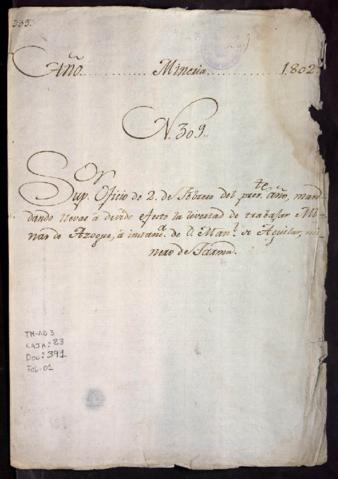 309.
Año......... Mineria......... 1802
N. 309.
Sor
Sup. Oficio de 2. de Febrero del preste. año, man-
dando llevar à devido efecto la livertad de trabajar Mi-
nas de Azogue, à instana. de D. Manl. de Aguilar, mi-
nero de Tarma.
TM-AD 3
CAJA: 83
DOC: 391
FOL: 01